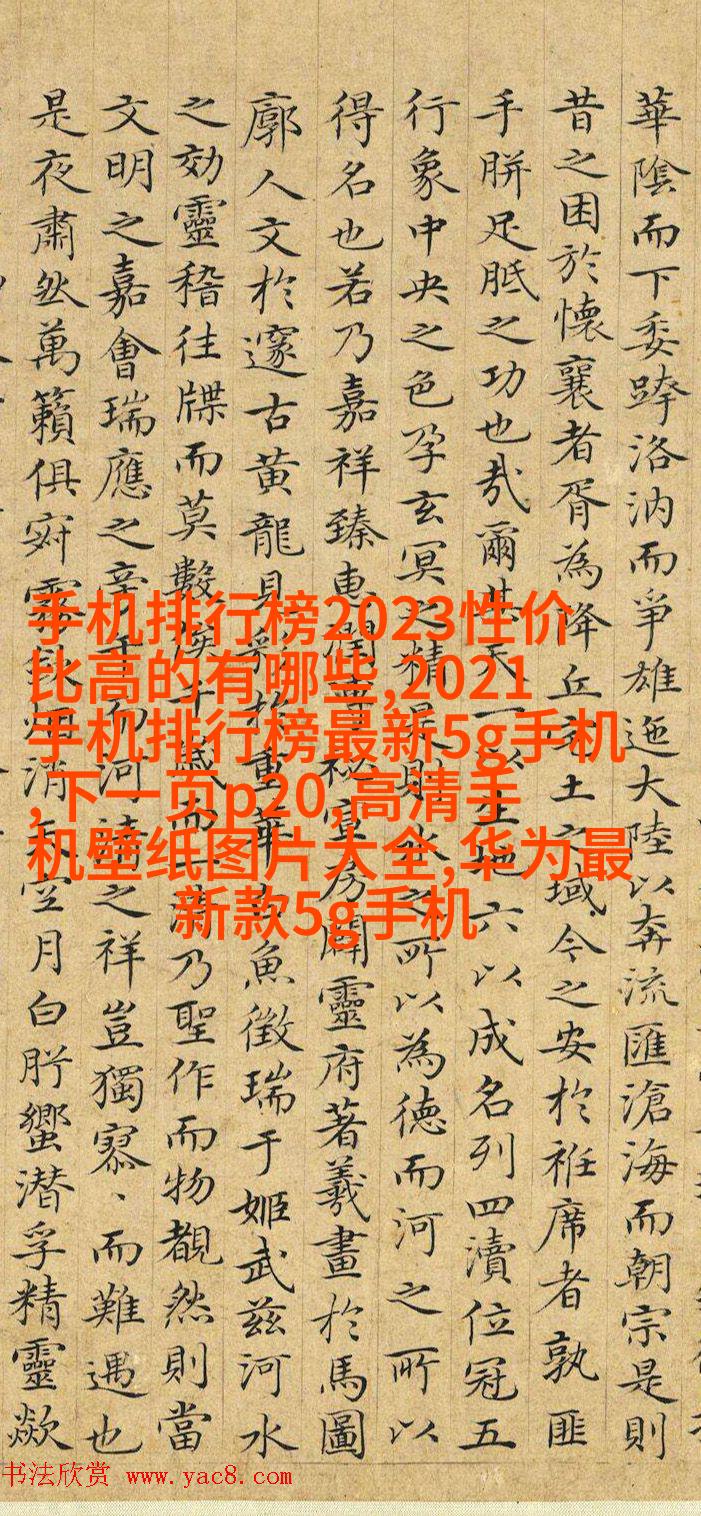 華陰而下委跨洛汭而爭雄迤大陸以奔流匯滄海而朝宗是則
昔之困於懷襄者胥為降丘宅土之域今之安於袵席者孰匪
手胼足胝之功也哉爾其天一以生地六以成名列四瀆位冠五
行象中央之色孕玄冥之精是則水之所以為德而河之所以
得名也若乃嘉祥臻惠秘寶房闢靈府著羲畫於馬圖
廓人文於邃古黃龍見重華魚徵瑞于姬武茲河水
之効靈稽往牒而莫數俟千歲而一清乃聖作而物覩然則當
文明之嘉會瑞應之而河清之祥豈獨寡、而難遇也
是夜肅然萬籟俱寂霧斂烟消天空月白肸蠁潛孚精靈歘
手机排行榜2023性价
比高的有哪些,2021
手机排行榜最新5g手机
,下一页p20,高清手
机壁纸图片大全,华为最
新款5g手机
书法欣赏 www.yac8.com